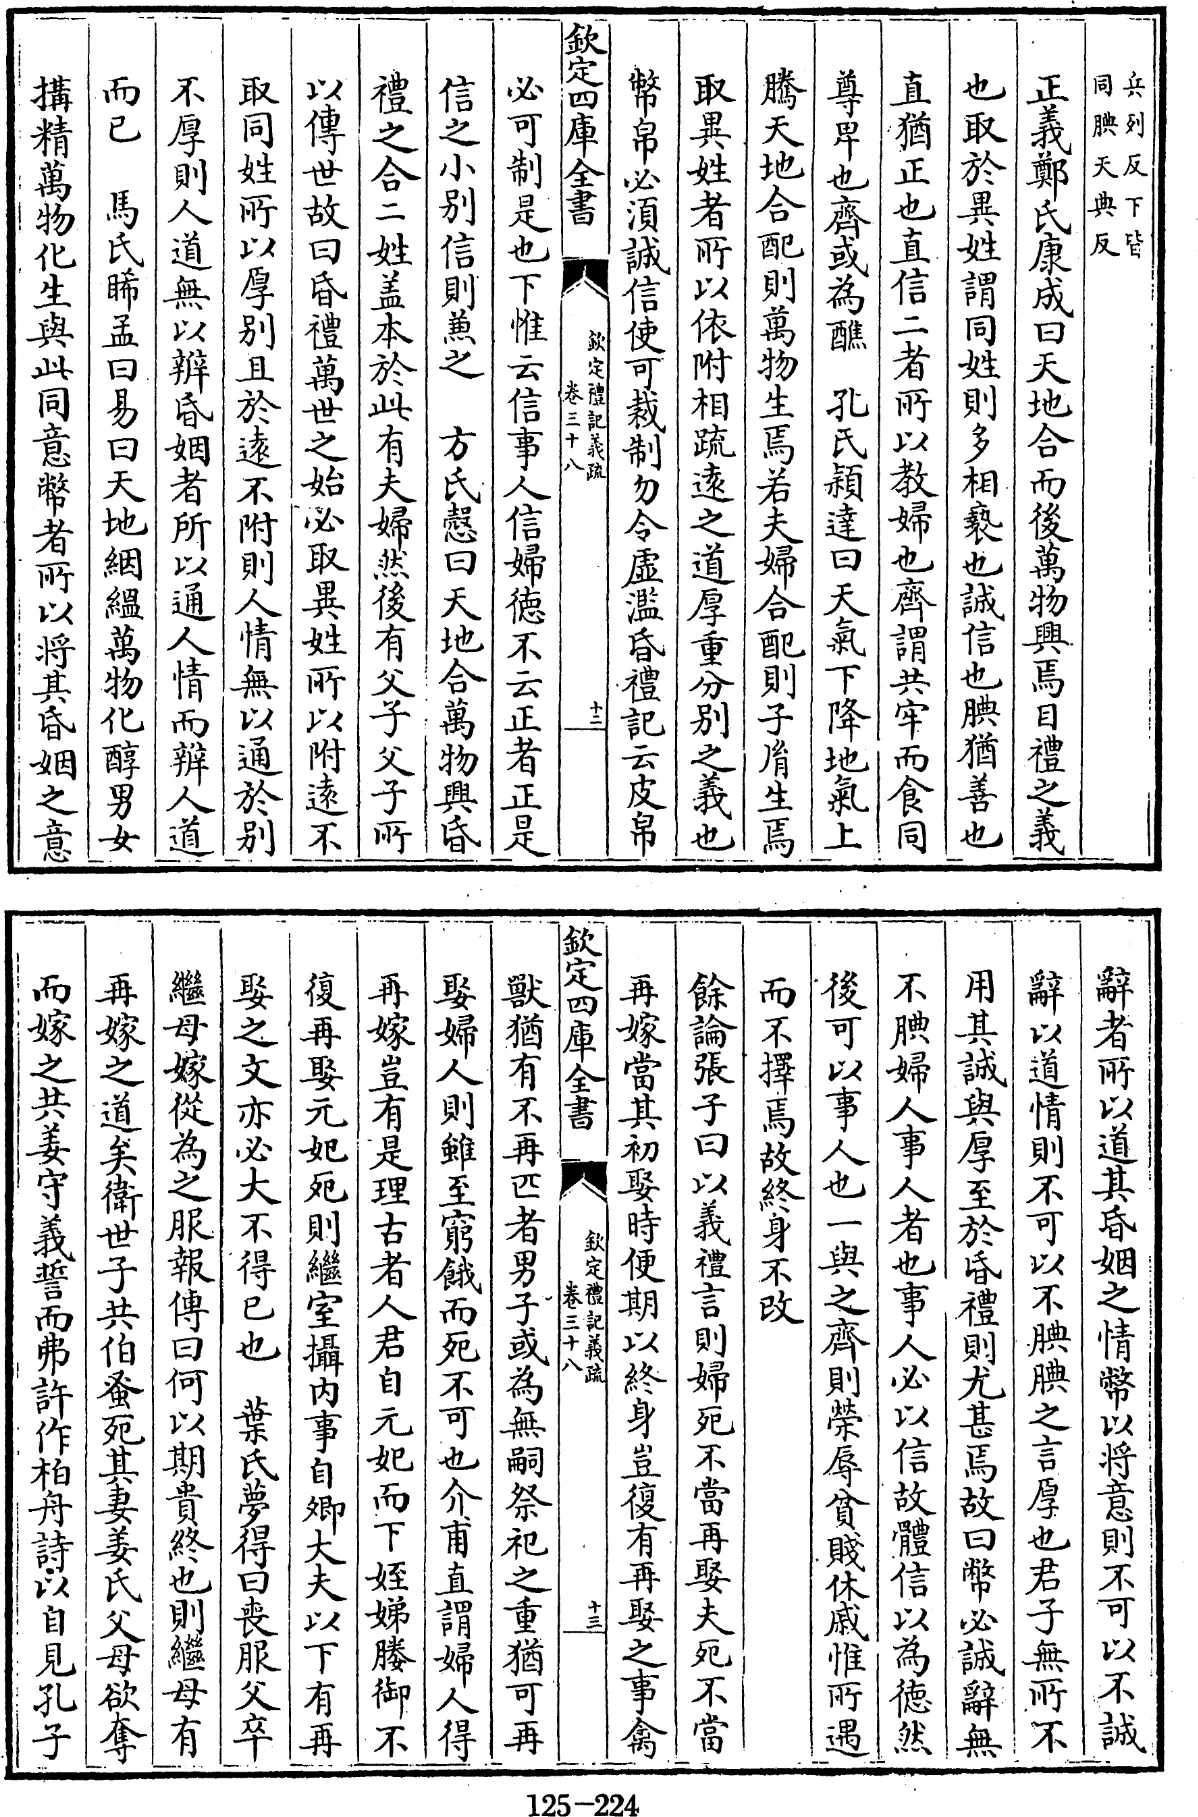 兵列反下皆
同腆天典反
正義鄭氏康成曰天地合而後萬物興焉目禮之義
也取於異姓謂同姓則多相䙝也誠信也腆猶善也
直猶正也直信二者所以教婦也齊謂共牢而食同
尊卑也齊或為醮　孔氏穎達曰天氣下降地氣上
騰天地合配則萬物生焉若夫婦合配則子𦙍生焉
取異姓者所以依附相疏遠之道厚重分别之義也
幣帛必須誠信使可裁制勿令虛濫昏禮記云皮帛
欽定四庫全書
欽定禮記義疏
卷三十八
十二
必可制是也下惟云信事人信婦德不云正者正是
信之小别信則兼之　方氏慤曰天地合萬物興昏
禮之合二姓盖本於此有夫婦然後有父子父子所
以傳世故曰昏禮萬世之始必取異姓所以附遠不
取同姓所以厚别且於遠不附則人情無以通於别
不厚則人道無以辨昏姻者所以通人情而辨人道
而已　馬氏睎孟曰易曰天地絪縕萬物化醇男女
搆精萬物化生與此同意幣者所以將其昏姻之意
辭者所以道其昏姻之情幣以將意則不可以不誠
辭以道情則不可以不腆腆之言厚也君子無所不
用其誠與厚至於昏禮則尤甚焉故曰幣必誠辭無
不腆婦人事人者也事人必以信故體信以為德然
後可以事人也一與之齊則榮辱貧賤休戚惟所遇
而不擇焉故終身不改
餘論張子曰以義禮言則婦死不當再娶夫死不當
再嫁當其初娶時便期以終身豈復有再娶之事禽
欽定四庫全書
欽定禮記義疏
卷三十八
十三
獸猶有不再匹者男子或為無嗣祭祀之重猶可再
娶婦人則雖至窮餓而死不可也介甫直謂婦人得
再嫁豈有是理古者人君自元妃而下姪娣媵御不
復再娶元妃死則繼室攝内事自卿大夫以下有再
娶之文亦必大不得已也　葉氏夢得曰喪服父卒
繼母嫁從為之服報傳曰何以期貴終也則繼母有
再嫁之道矣衛世子共伯蚤死其妻姜氏父母欲奪
而嫁之共姜守義誓而弗許作柏舟詩以自見孔子
125-224